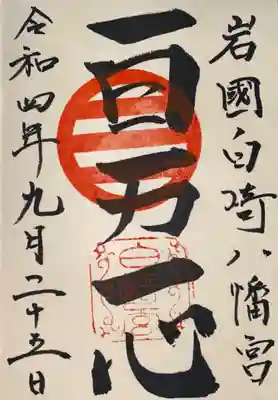 岩國白崎八幡宮
一百万一心
令和四年九月二十五日